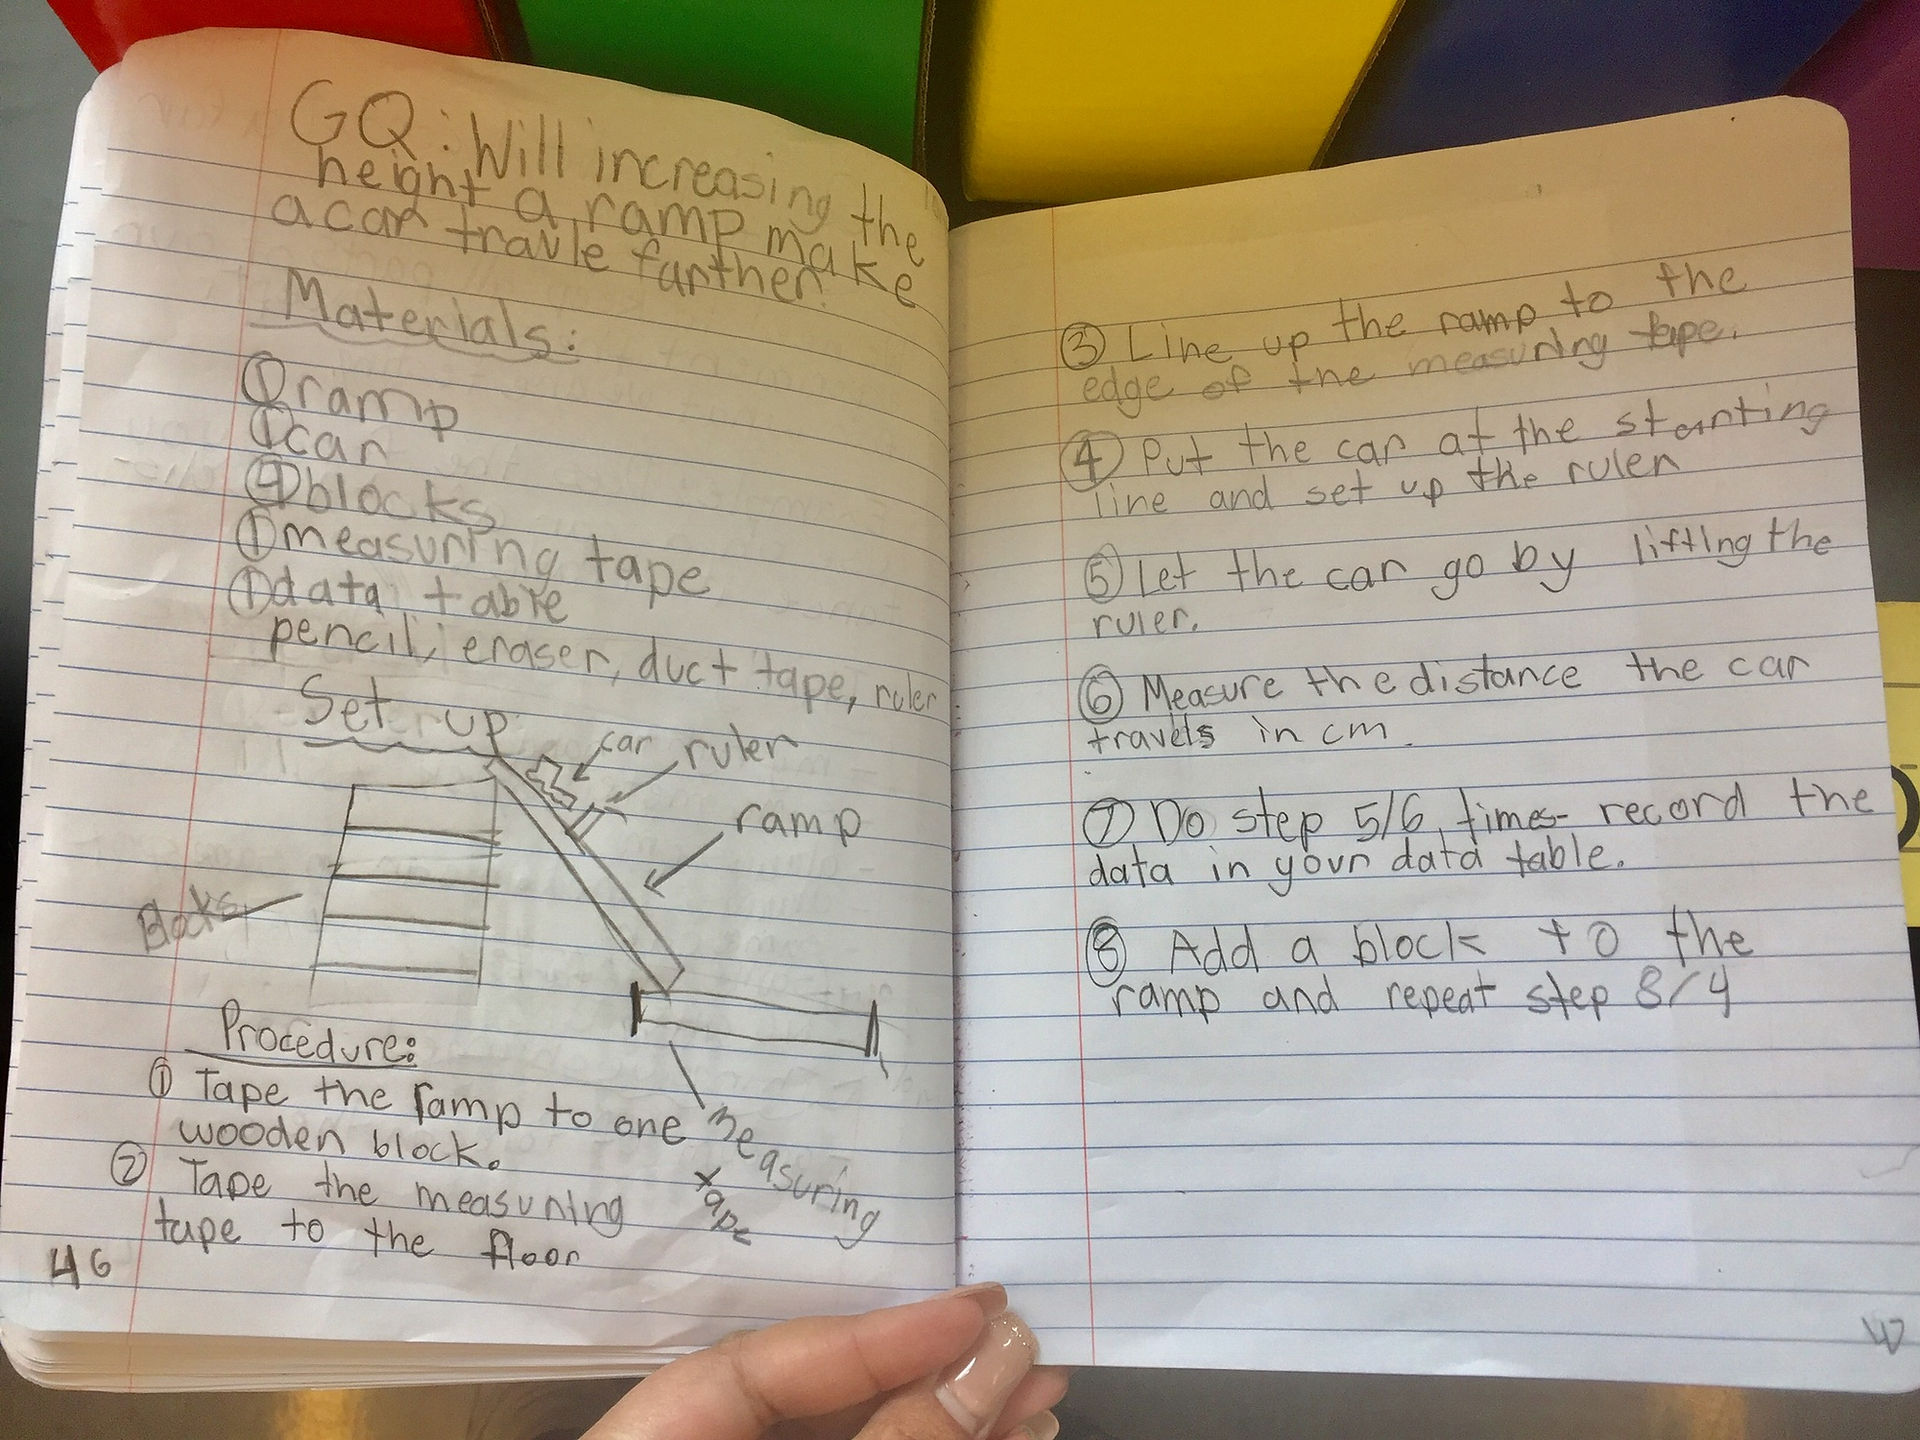 GQ: Will increasing the
height a ramp make
a car travle farther.
Materials:
① ramp
① car
④ blocks
① measuring tape
① data table
pencil, eraser, duct tape, ruler
Set up
car
ruler
ramp
Blocks
measuring
tape
Procedure:
① Tape the ramp to one
wooden block.
② Tape the measuring
tape to the floor
46
③ Line up the ramp to the
edge of the measuring tape.
④ Put the car at the starting
line and set up the ruler
⑤ Let the car go by lifting the
ruler.
⑥ Measure the distance the car
travels in cm.
⑦ Do step 5/6, times- record the
data in your data table.
⑧ Add a block to the
ramp and repeat step 3/4
47